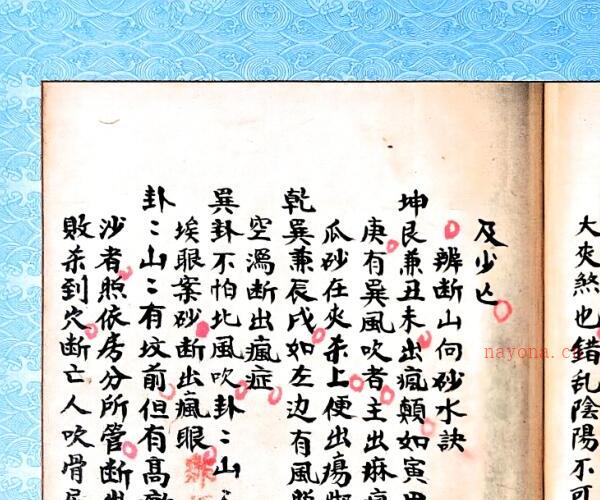 大夾煞也錯乱陰陽不可
及少亡
辨断山向砂水訣
坤艮兼丑未出瘋顛如寅甲
庚有巽風吹者主出痳
瓜砂在夾杀上便出瘍
乾巽兼辰戌如左边有風
空濁断出瘋症
巽卦不怕北風吹卦〻山〻
埃眼案砂断出瘋眼
卦〻山〻有坟前但有高
沙者照依房分所管断出
敗杀到穴断亡人吹骨
nayona.cn